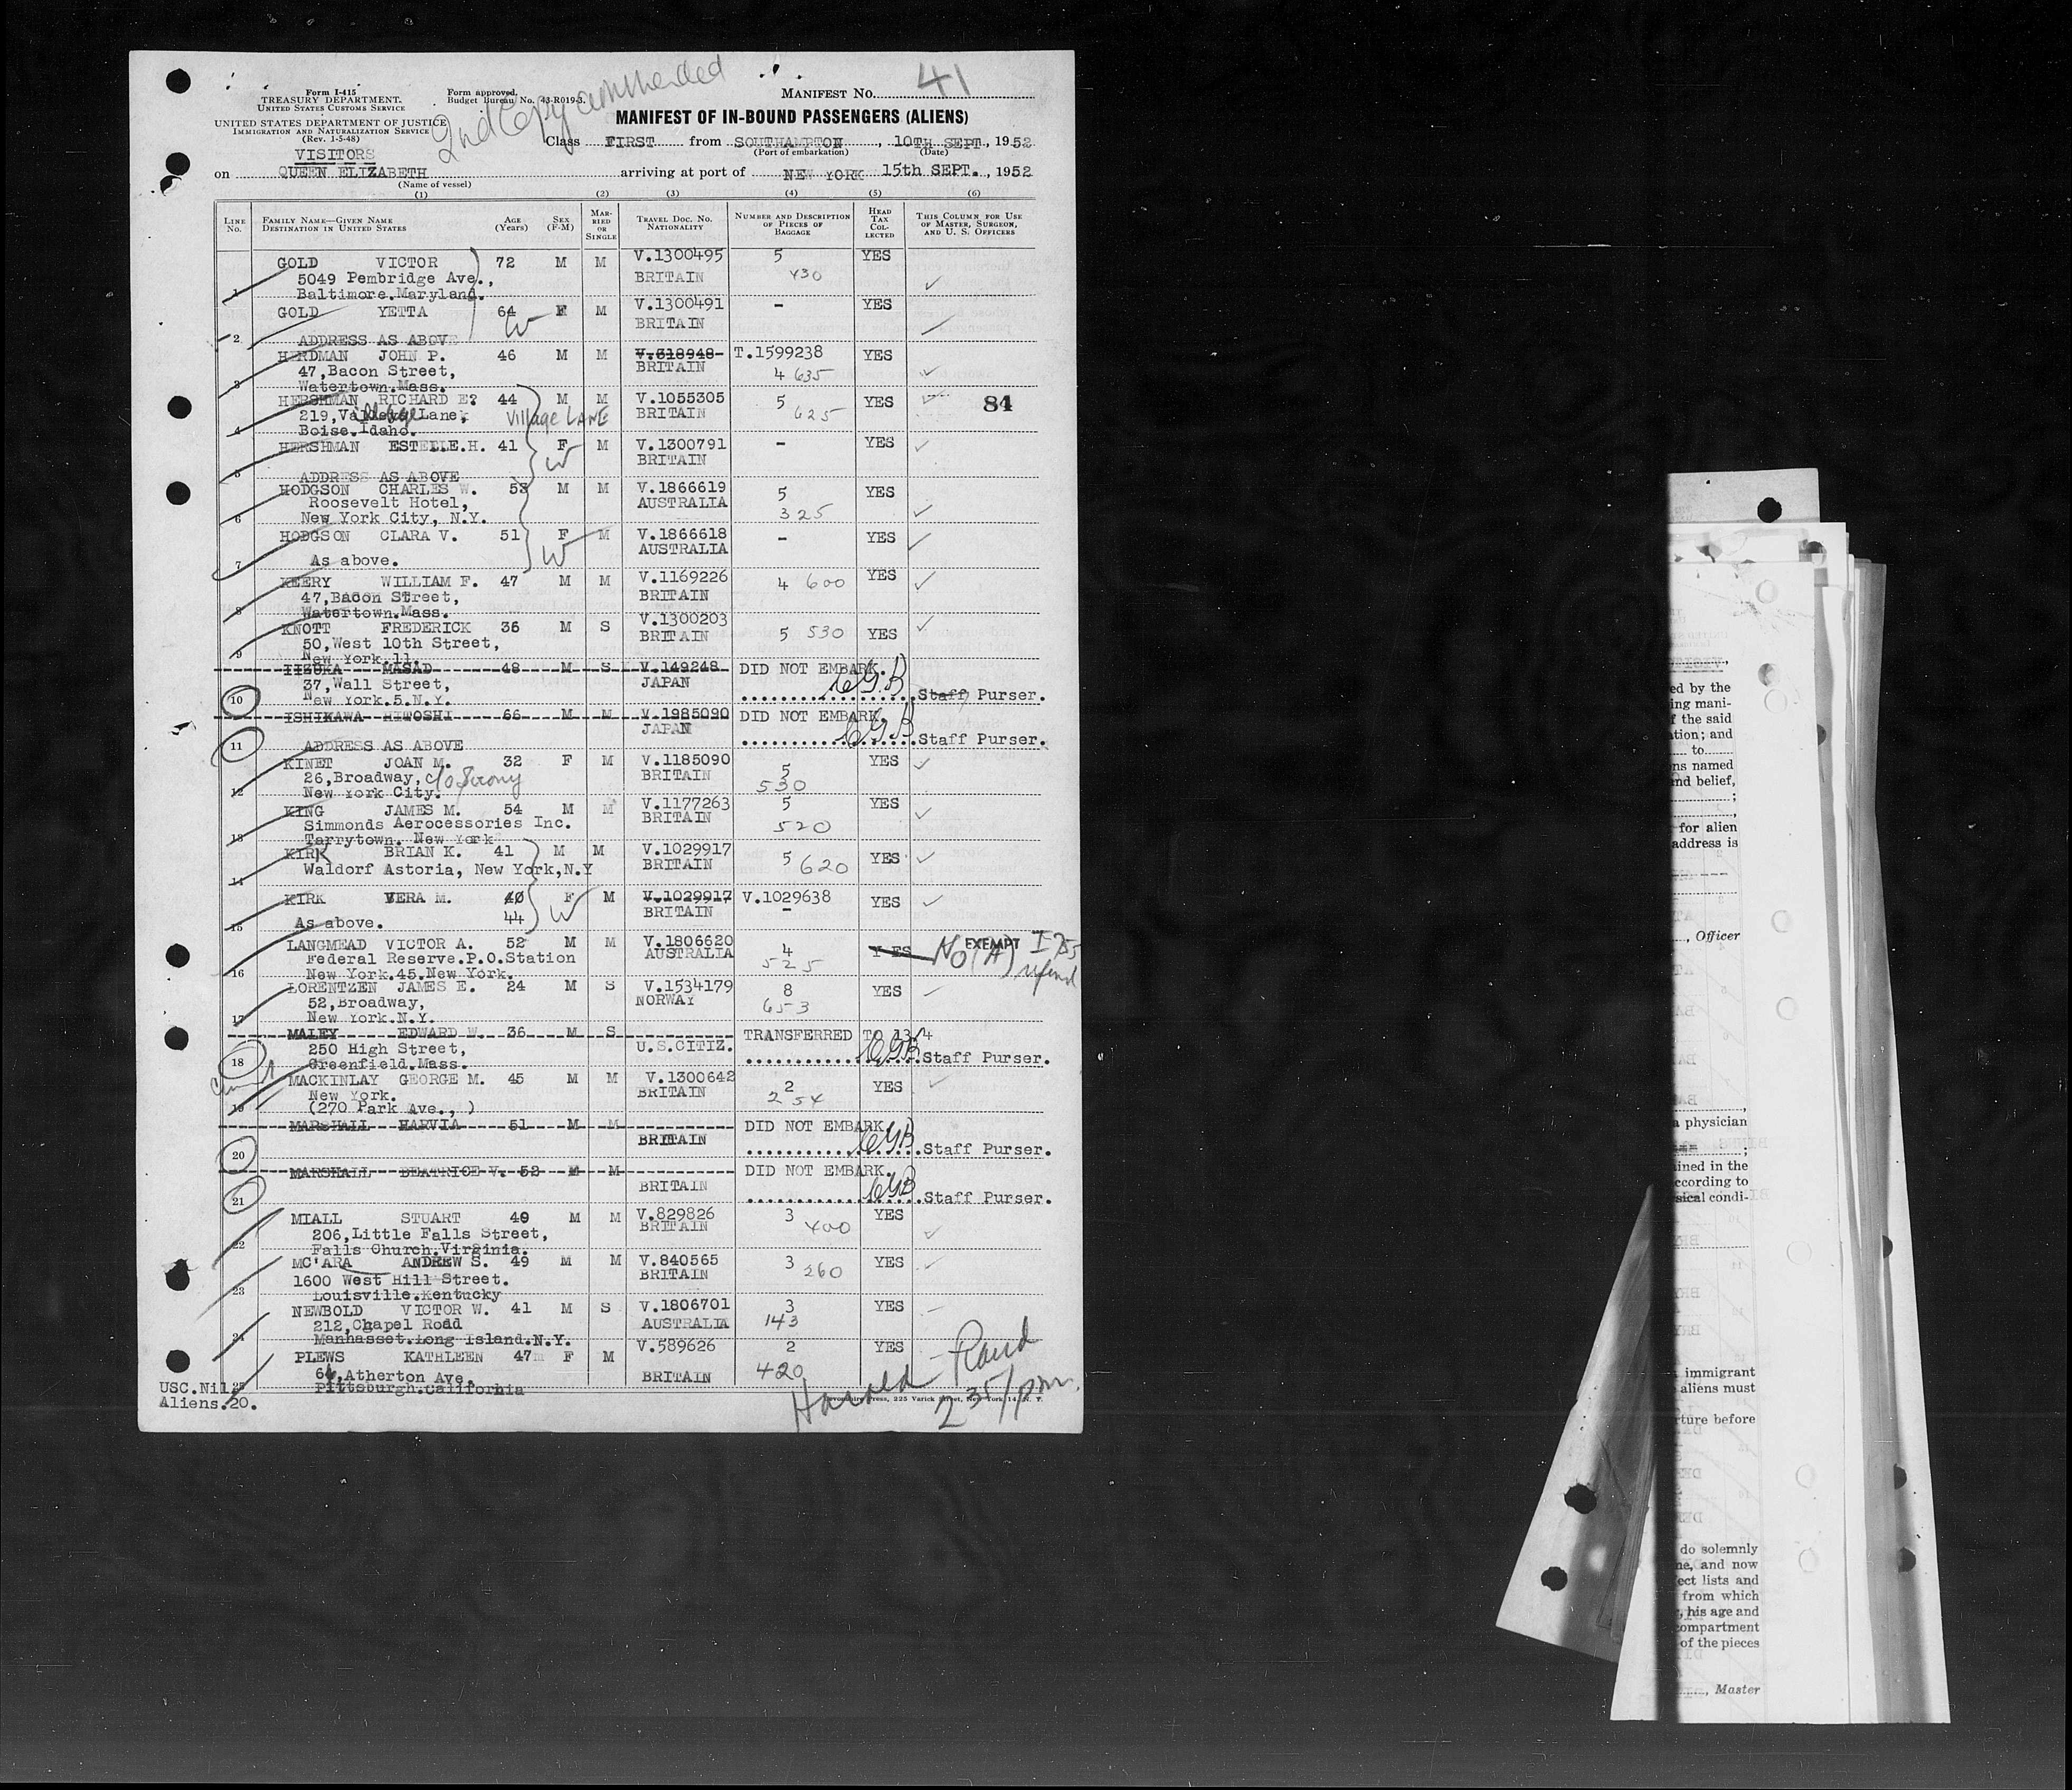 41
2nd Copy
Form I-415
TREASURY DEPARTMENT.
UNITED STATES CUSTOMS SERVICE
Form approved.
Budget Bureau No. 43-R019-3.
MANIFEST NO.
UNITED STATES DEPARTMENT OF JUSTICE
IMMIGRATION AND NATURALIZATION SERVICE
(Rev. 1-5-48)
MANIFEST OF IN-BOUND PASSENGERS (ALIENS)
VISITORS
Class FIRST from SOUTHAMPTON, 10TH SEPT., 1952
(Port of embarkation) (Date)
on QUEEN ELIZABETH arriving at port of NEW YORK 15th SEPT., 1952
(Name of vessel)
(1) (2) (3) (4) (5) (6)
LINE NO. FAMILY NAME—GIVEN NAME DESTINATION IN UNITED STATES AGE (Years) SEX (F-M) MARRIED OR SINGLE TRAVEL DOC. NO. NATIONALITY NUMBER AND DESCRIPTION OF PIECES OF BAGGAGE HEAD TAX COLLECTED THIS COLUMN FOR USE OF MASTER, SURGEON, AND U. S. OFFICERS
GOLD VICTOR 72 M M V.1300495 5 YES
5049 Pembridge Ave., BRITAIN 430
1 Baltimore.Maryland.
GOLD YETTA 64 F M V.1300491 - YES
W BRITAIN
2 ADDRESS AS ABOVE
HERDMAN JOHN P. 46 M M V.318948- T.1599238 YES
47,Bacon Street, BRITAIN 4 635
3 Watertown.Mass.
HERSHMAN RICHARD E? 44 M M V.1055305 5 YES 84
219, Village Lane, Village LANE BRITAIN 625
4 Boise.Idaho.
HERSHMAN ESTELLE.H. 41 F M V.1300791 - YES
W BRITAIN
5 ADDRESS AS ABOVE
HODGSON CHARLES W. 53 M M V.1866619 5 YES
Roosevelt Hotel, AUSTRALIA
6 New York City, N.Y. 325
HODGSON CLARA V. 51 F M V.1866618 - YES
W AUSTRALIA
7 As above.
KEERY WILLIAM F. 47 M M V.1169226 4 600 YES
47,Bacon Street, BRITAIN
8 Watertown.Mass.
KNOTT FREDERICK 36 M S V.1300203
50,West 10th Street, BRITAIN 5 530 YES
9 New York.11.
IIZUKA MASAD 48 M S V.149248 DID NOT EMBARK.
37,Wall Street, JAPAN
10 New York.5.N.Y. Staff Purser.
ISHIKAWA HITOSHI 66 M M V.1985090 DID NOT EMBARK.
JAPAN
11 ADDRESS AS ABOVE Staff Purser.
KINET JOAN M. 32 F M V.1185090 5 YES
26,Broadway, c/o BRITAIN 530
12 New York City.
KING JAMES M. 54 M M V.1177263 5 YES
Simmonds Aerocessories Inc. BRITAIN 520
13 Tarrytown. New York
KIRK BRIAN K. 41 M M V.1029917 5 620 YES
14 Waldorf Astoria, New York,N.Y BRITAIN
KIRK VERA M. 40 F M V.1029917 V.1029638 YES
44 W BRITAIN -
15 As above.
LANGMEAD VICTOR A. 52 M M V.1806620 4 YES No (A) EXEMPT
Federal Reserve.P.O.Station AUSTRALIA 525 refund
16 New York.45.New York.
LORENTZEN JAMES E. 24 M S V.1534179 8 YES
52,Broadway, NORWAY 653
17 New York.N.Y.
MALEY EDWARD W. 36 M S TRANSFERRED TO
250 High Street, U.S.CITIZ.
18 Greenfield.Mass. Staff Purser.
MACKINLAY GEORGE M. 45 M M V.1300642 2 YES
New York. BRITAIN 254
19 (270 Park Ave., )
MARSHALL HARVIA 51 M M DID NOT EMBARK.
BRITAIN
20 Staff Purser.
MARSHALL BEATRICE V. 52 M M DID NOT EMBARK.
BRITAIN
21 Staff Purser.
MIALL STUART 40 M M V.829826 3 YES
206,Little Falls Street, BRITAIN 400
22 Falls Church.Virginia.
MC'ARA ANDREW S. 49 M M V.840565 3 260 YES
1600 West Hill Street. BRITAIN
23 Louisville.Kentucky
NEWBOLD VICTOR W. 41 M S V.1806701 3 YES
212,Chapel Road AUSTRALIA 143
24 Manhasset.Long Island.N.Y.
PLEWS KATHLEEN 47 F M V.589626 2 YES
64,Atherton Ave. BRITAIN 420
25 Pittsburgh.California
USC.Nil.
Aliens.20.
Harold Rand
2 35/pm.
Press, 225 Varick Street, New York 14, N. Y.
ed by the
ing mani-
f the said
ation; and
to
ns named
nd belief,
for alien
address is
, Officer
a physician
ained in the
ccording to
sical condi-
immigrant
aliens must
rture before
do solemnly
me, and now
ect lists and
from which
, his age and
compartment
of the pieces
, Master